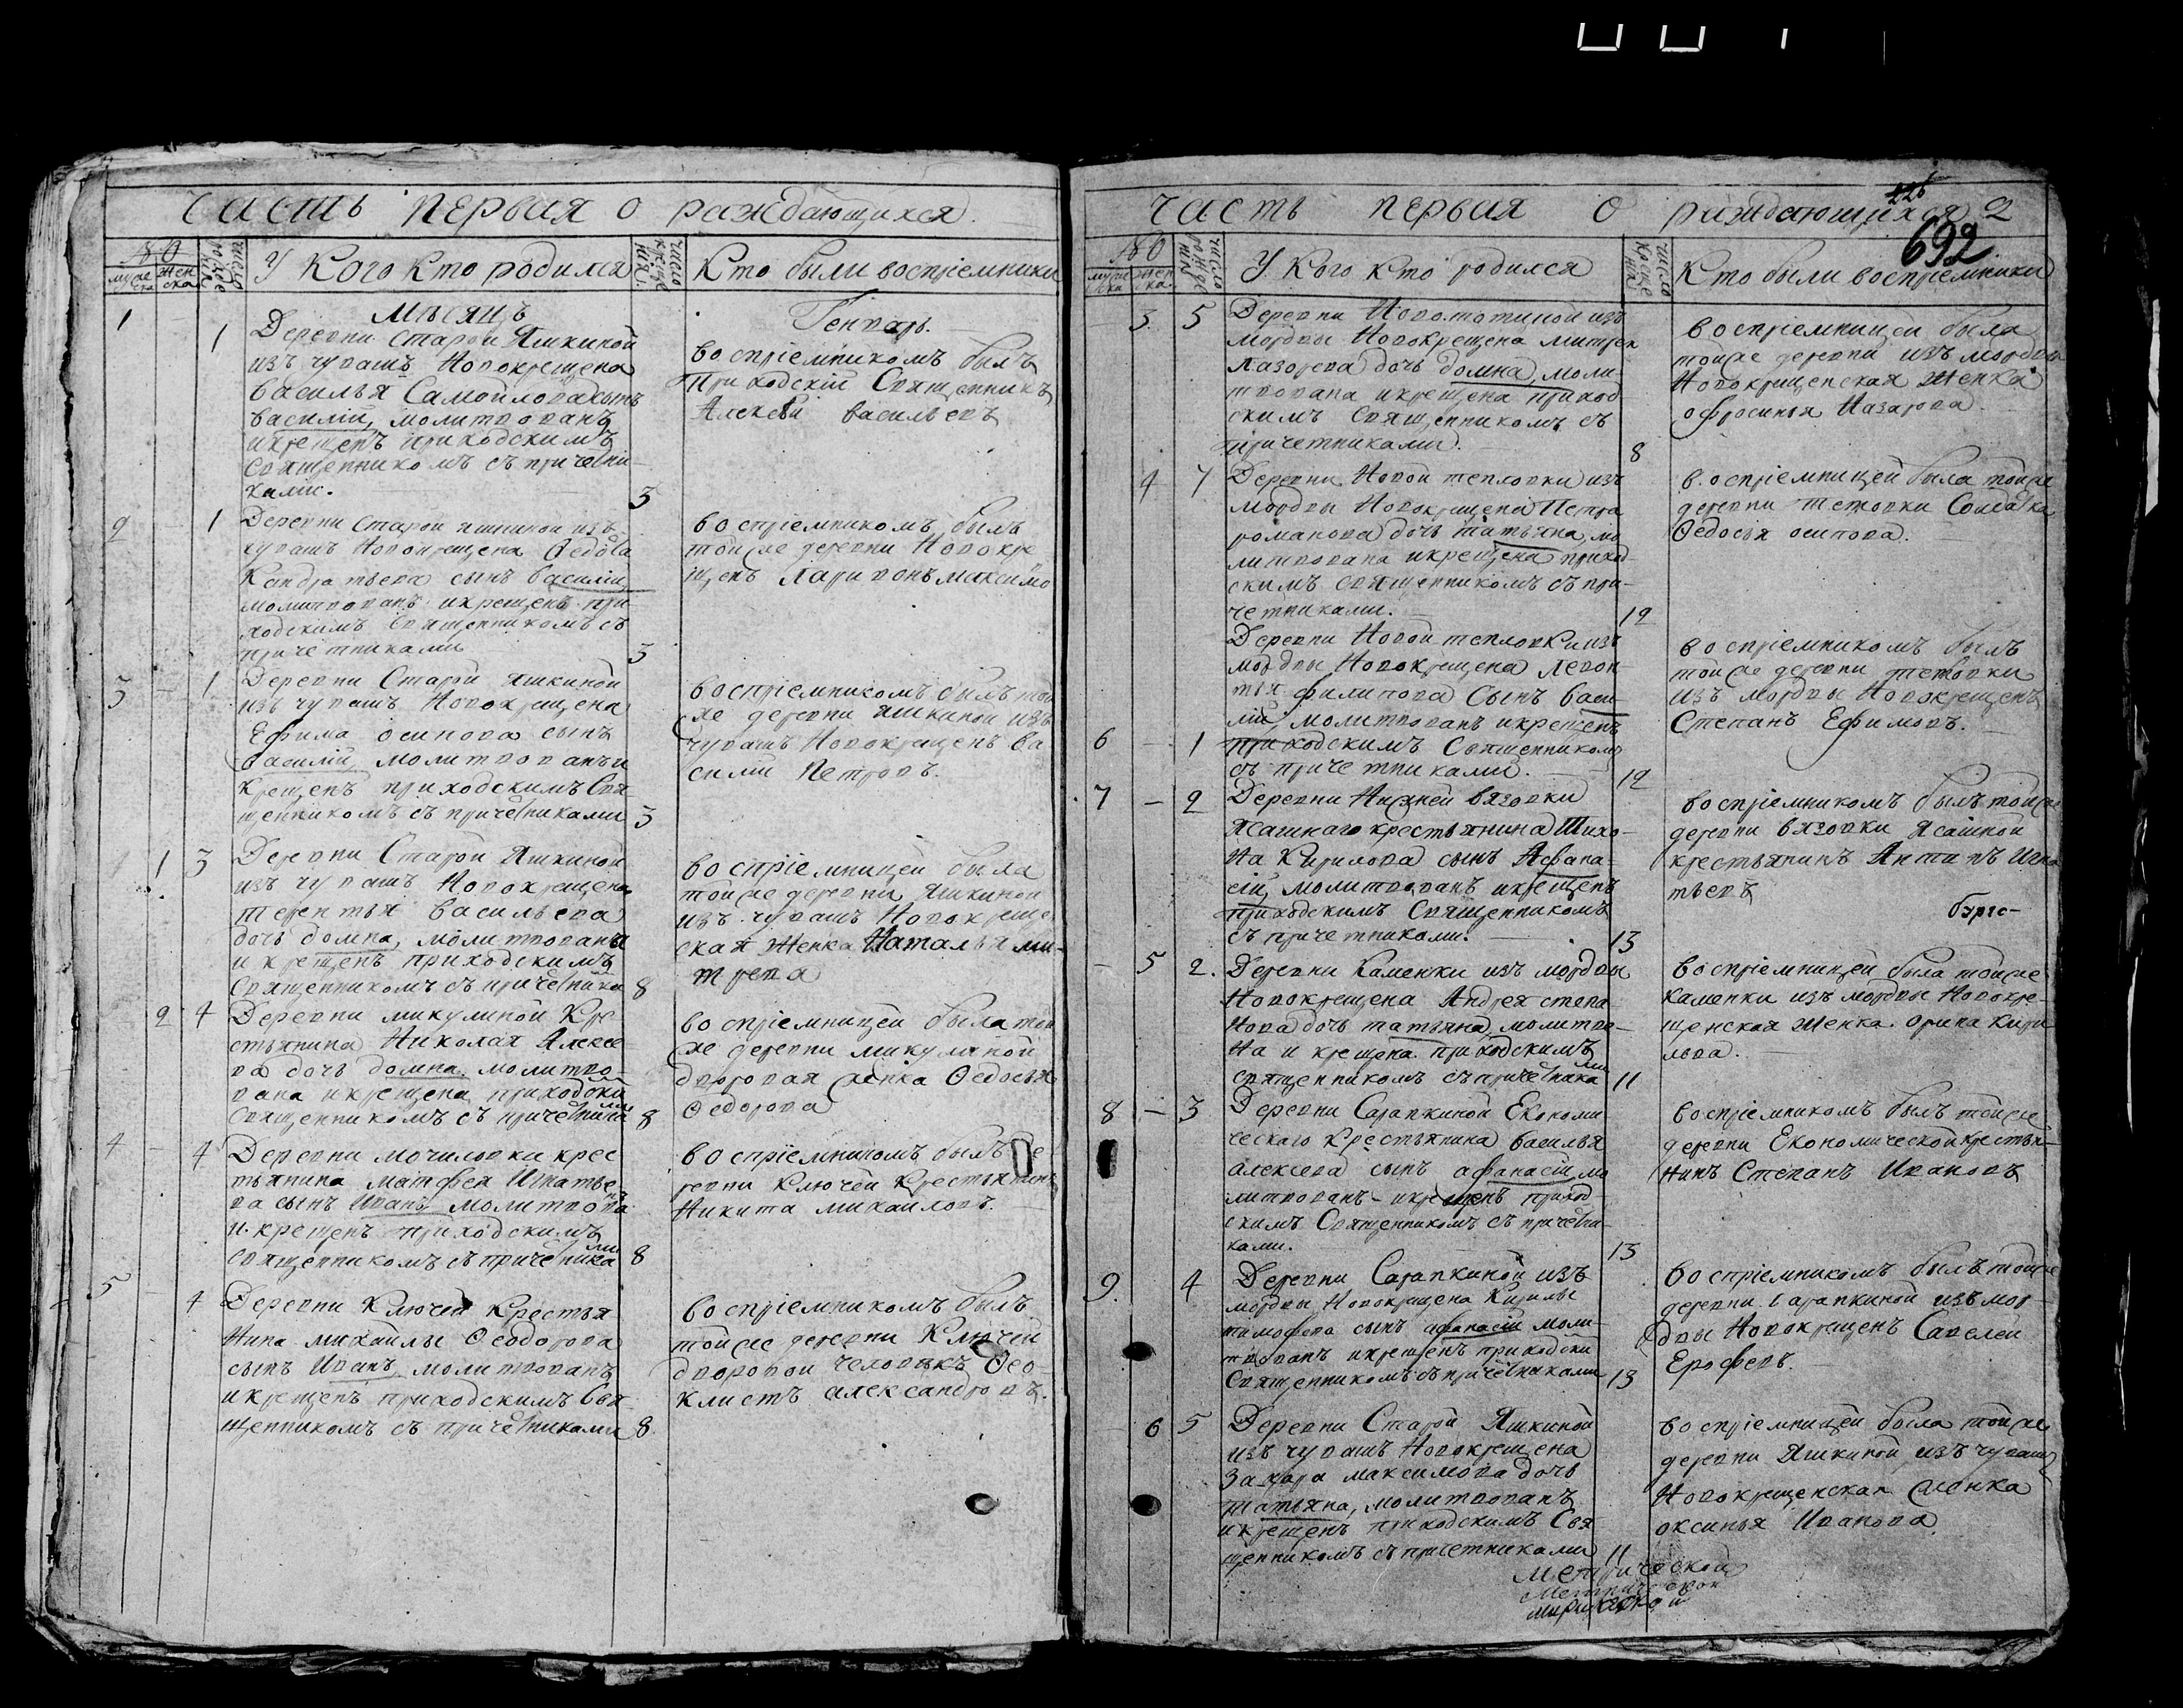 Часть первая о раждающихся.
№ 0
муже
ска
жен
ска
число
рожде
нія
У кого кто родился
число
креще
нія
Кто были воспріемники
Мѣсяцъ
Генварь.
1
1
Деревни Старой Яшкиной
изъ чувашъ Новокрещена
Василья Самойлова сынъ
Василій, молитвованъ
и крещенъ приходскимъ
Священникомъ съ причетни-
ками.
3
воспріемникомъ былъ
Приходскій Священникъ
Алексѣй Васильевъ
2
—
1
Деревни Старой Яшкиной изъ
чувашъ Новокрещена Ѳедота
Кондратьева сынъ Василій
молитвованъ и крещенъ при
ходскимъ Священникомъ съ
причетниками
3
воспріемникомъ былъ
той же деревни Новокре
щенъ Ларивонъ Максимо
3
—
1
Деревни Старой Яшкиной
изъ чувашъ Новокрещена
Ефима Осипова сынъ
Василій, молитвованъ и
крещенъ приходскимъ Свя
щенникомъ съ причетниками
3
воспріемникомъ былъ той
же деревни Яшкиной изъ
чувашъ Новокрещенъ Ва
силій Петровъ.
1
3
Деревни Старой Яшкиной
изъ чувашъ Новокрещена
Терентья Васильева
дочь Домна, молитвована
и крещенъ приходскимъ
Священникомъ съ причетника
8
воспріемницей была
той же деревни Яшкиной
изъ чувашъ Новокреще
ская женка Наталья Ми-
трева
2
4
Деревни Микулиной Кре
стьянина Николая Алексе
ва дочь Домна, молитво-
вана и крещена приходски
Священникомъ съ причетника
ми
8
воспріемницей была той
же деревни Микулиной
дворовая женка Ѳедосья
Ѳедорова
4
—
4
Деревни Мочиловки крес
тьянина Матфея Игнатье
ва сынъ Иванъ молитвова
нъ
и крещенъ приходскимъ
священникомъ съ причетника
ми
8
воспріемникомъ былъ де
ревни Ключей Крестьянинъ
Никита Михайловъ.
5
4
Деревни Ключей Крестья
нина Михайлы Ѳеодорова
сынъ Иванъ, молитвованъ
и крещенъ приходскимъ Свя
щенникомъ съ причетниками
8
воспріемникомъ былъ
той же деревни Ключей
дворовой человѣкъ Ѳео
клистъ Александровъ.
226
Часть первая о раждающихся 2
692
№ 0
муже
ска
жен
ска.
число
рожде
нія
У кого кто родился
число
креще
нія
Кто были воспріемники
3
5
Деревни изъ
мордвы Новокрещена Митрея
Лазорева дочь Домна, моли-
твована и крещена приход
скимъ Священникомъ съ
причетниками.
8
воспріемницей была
той же деревни изъ мордвы
Новокрещенская женка
Офросинья Назарова
4
7
Деревни Новой Тепловки изъ
мордвы Новокрещена Петра
Романова дочь Татьяна, мо
литвована и крещена приход
скимъ священникомъ съ при-
четниками.
12
воспріемницей была той же
деревни Тепловки Солдатка
Ѳедосья Осипова.
6
—
1
Деревни Новой Тепловки изъ
мордвы Новокрещена Левон
тья Филипова Сынъ Васи
лій молитвованъ и крещенъ
приходскимъ Священникомъ
съ причетниками.
12
воспріемникомъ былъ
той же деревни Тепловки
изъ мордвы Новокрещенъ
Степанъ Ефимовъ.
7
—
2
Деревни Нижней Вязовки
Ясашнаго крестьянина Тихо-
на Кирилова сынъ Афана-
сій, молитвованъ и крещенъ
приходскимъ Священникомъ
съ причетниками.
13
воспріемникомъ былъ той же
деревни Вязовки Ясашной
крестьянинъ Антипъ Игна
тьевъ
—
5
2.
Деревни Каменки изъ мордвы
Новокрещена Андрея Степа
нова дочь Татьяна, молитво-
на и крещена приходскимъ
священникомъ съ причетника
ми
11
воспріемницей была той же
Каменки изъ мордвы Новокре-
щенская женка Орина Кири
лова.
8
—
3
Деревни Сарапкиной Економи-
ческаго Крестьянина Василья
Алексева сынъ Афанасій, мо
литвованъ и крещенъ приход
скимъ Священникомъ съ причетни-
ками.
13
воспріемникомъ былъ той же
деревни Економической крестья-
нинъ Степанъ Ивановъ
9.
4
Деревни Сарапкиной изъ
мордвы Новокрещена Кирилы
Тимофева сынъ Афанасій моли-
твованъ и крещенъ приходски
Священникомъ съ причетниками
13
воспріемникомъ былъ той же
деревни Сарапкиной изъ мор-
двы Новокрещенъ Савелей
Ерофеевъ.
6
5
Деревни Старой Яшкиной
изъ чувашъ Новокрещена
Захара Максимова дочь
Татьяна, молитвованъ
и крещенъ приходскимъ Свя
щенникомъ съ причетниками
11
воспріемницей была той же
деревни Яшкиной изъ чувашъ
Новокрещенская женка
Оксинья Иванова
Метрической